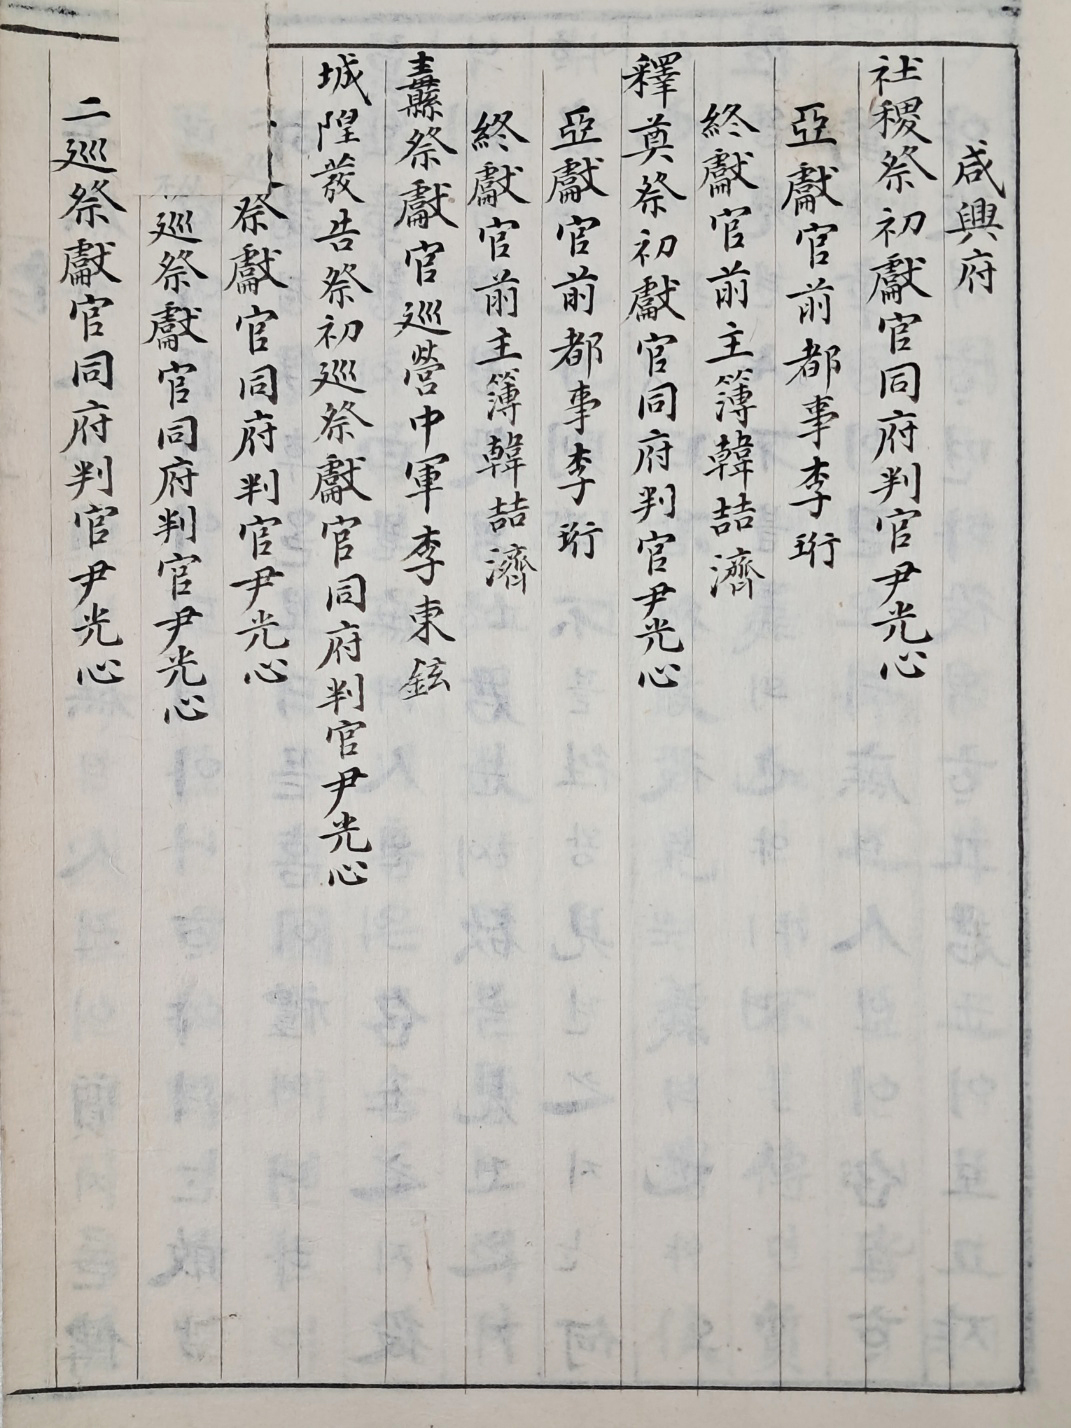 咸興府
社稷祭初獻官同府判官尹光心
亞獻官前都事李珩
終獻官前主簿韓喆濟
釋奠祭初獻官同府判官尹光心
亞獻官前都事李珩
終獻官前主簿韓喆濟
纛祭獻官巡營中軍李東鉉
城隍發告祭初巡祭獻官同府判官尹光心
祭獻官同府判官尹光心
巡祭獻官同府判官尹光心
二巡祭獻官同府判官尹光心